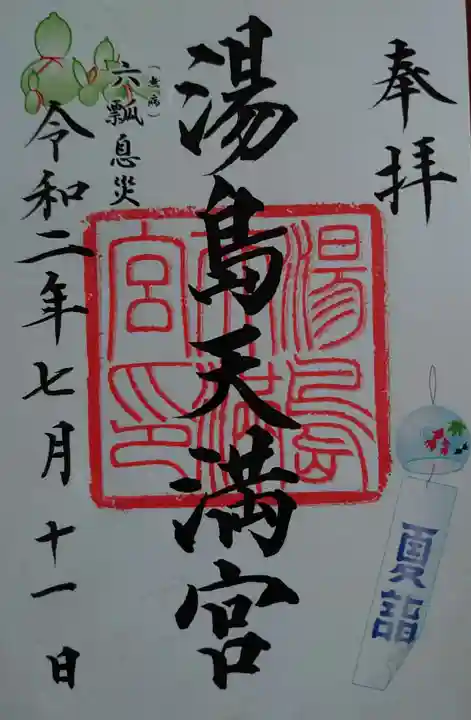 奉拝
夏詣
湯島天満宮
湯島天満宮印
六瓢息災
(無病)
令和二年七月十一日